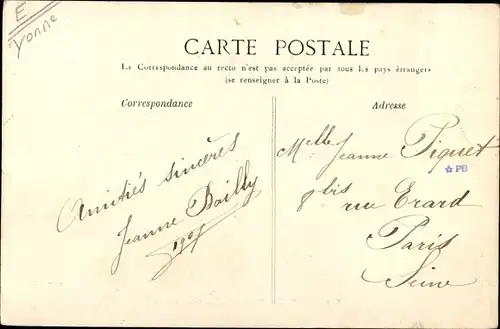 E
Yonne
CARTE POSTALE
La Correspondance au recto n'est pas acceptée par tous les pays étrangers
(se renseigner à la Poste)
Correspondance
Adresse
Amitiés sincères
Jeanne Bailly
1907
Melle Jeanne Piguet
☆ PB
8 bis rue Erard
Paris
Seine